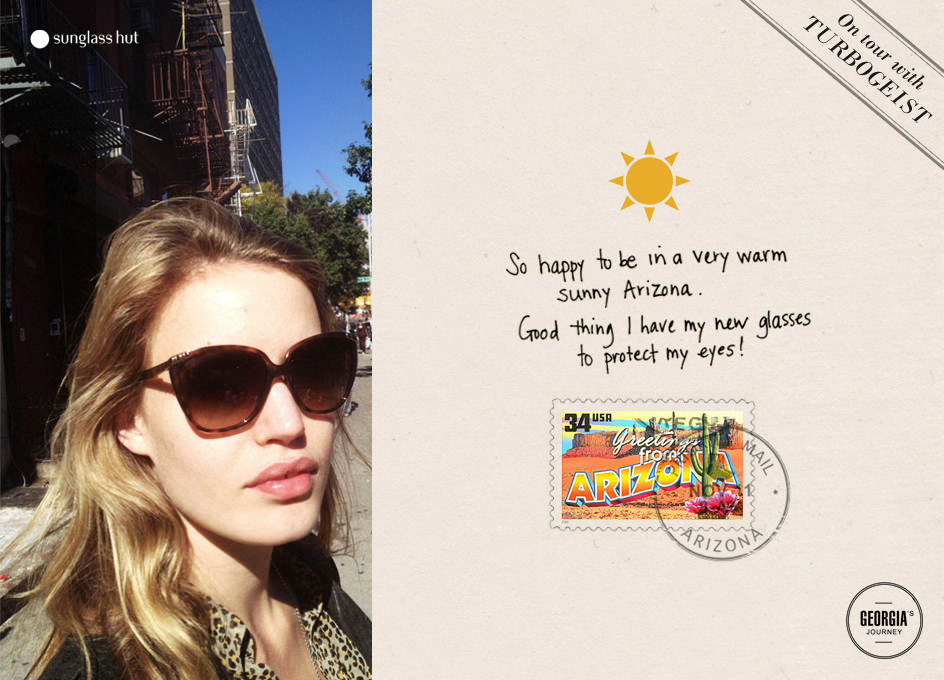 sunglass hut
On tour with
TURBOGEIST
So happy to be in a very warm
sunny Arizona.
Good thing I have my new glasses
to protect my eyes!
34 USA
Greetings
from
ARIZONA
MAIL
NOV
ARIZONA
GEORGIA'S
JOURNEY